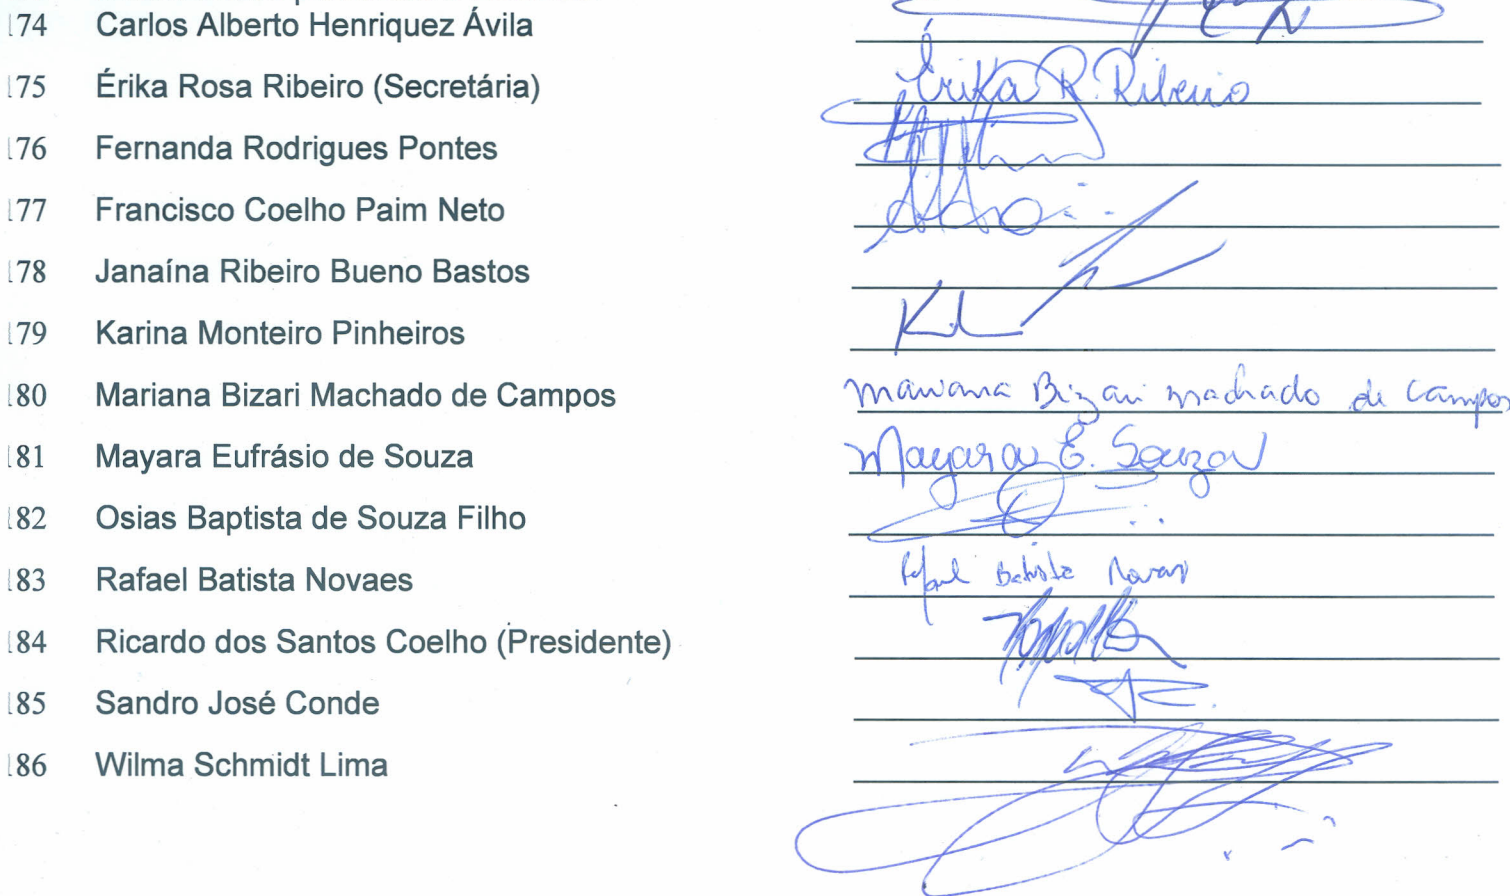 174 Carlos Alberto Henriquez Ávila
175 Érika Rosa Ribeiro (Secretária) Érika R. Ribeiro
176 Fernanda Rodrigues Pontes
177 Francisco Coelho Paim Neto
178 Janaína Ribeiro Bueno Bastos
179 Karina Monteiro Pinheiros
180 Mariana Bizari Machado de Campos Mariana Bizari Machado de Campos
181 Mayara Eufrásio de Souza Mayara E. Souza
182 Osias Baptista de Souza Filho
183 Rafael Batista Novaes Rafael Batista Novaes
184 Ricardo dos Santos Coelho (Presidente)
185 Sandro José Conde
186 Wilma Schmidt Lima